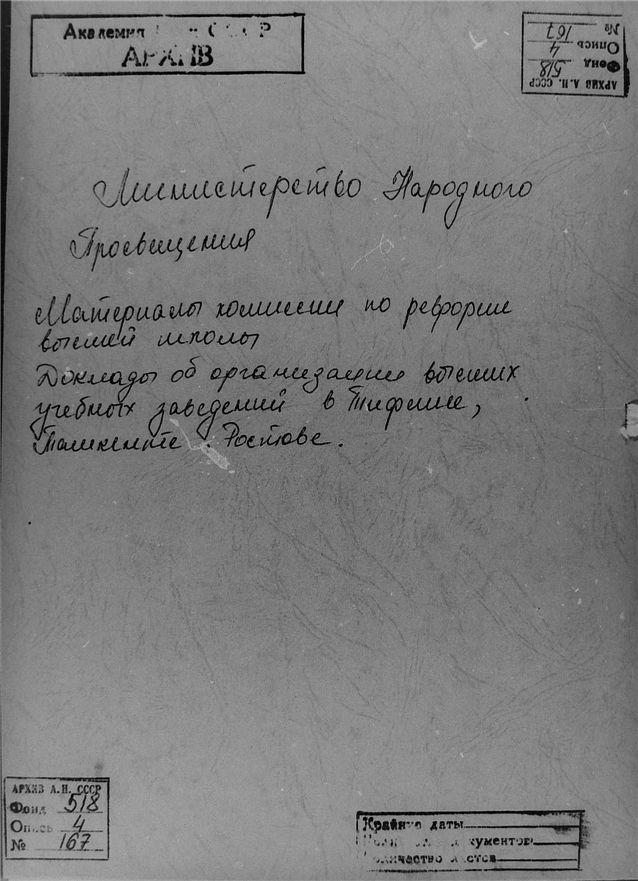 Академия СССР
АРХИВ
№ 167
Опись 4
Фонд 518
АРХИВ А.Н. СССР
Министерство Народного
Просвещения
Материалы комиссии по реформе
высшей школы
Доклады об организации высших
учебных заведений в Тифлисе,
Ташкенте, Ростове.
АРХИВ А.Н. СССР
Фонд 518
Опись 4
№ 167
Крайние даты
документов
Количество листов